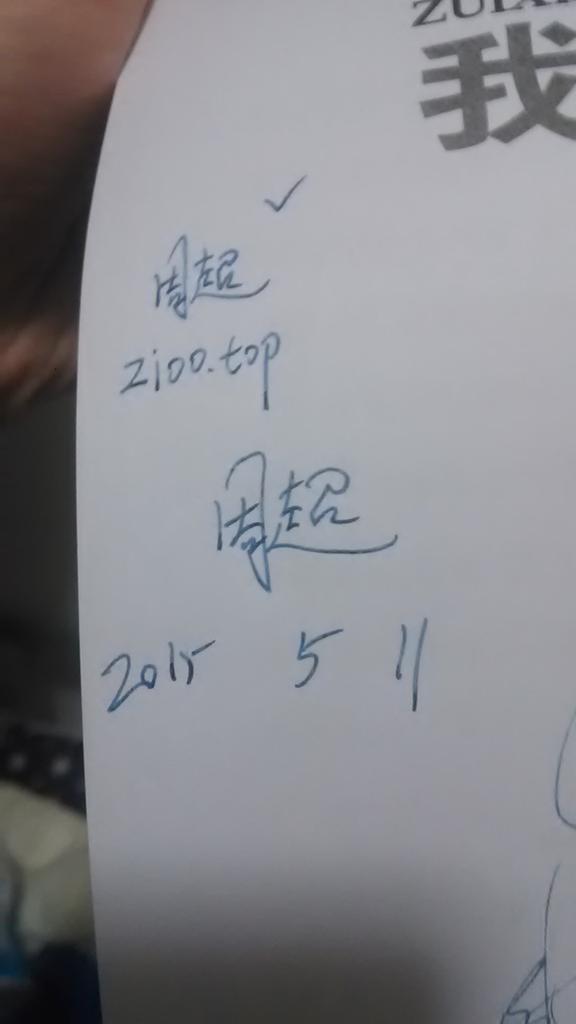 ZUIXI
我
周超
zioo.top
周超
2015 5 11